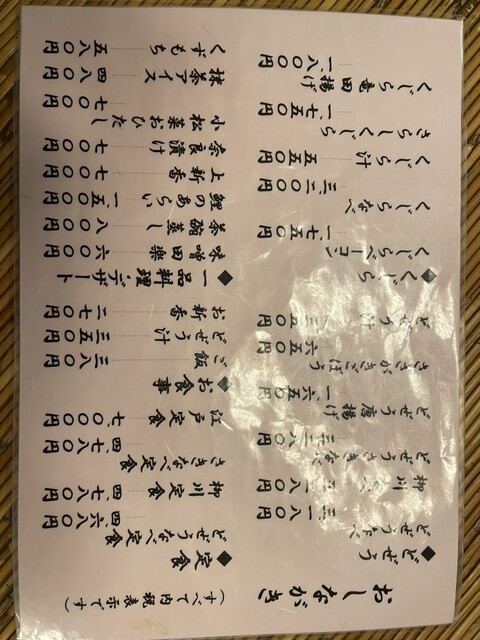 おしながき
◆どぜう
どぜうなべ 三、一八〇円
柳川なべ 三、一八〇円
どぜうさきなべ 三、二八〇円
どぜう唐揚げ 一、六五〇円
ささがきごぼう 六五〇円
どぜう汁 三五〇円
◆くじら
くじらベーコン 一、七五〇円
くじらなべ 三、二〇〇円
くじら汁 五五〇円
さらしくじら 一、七五〇円
くじら竜田揚げ 一、八〇〇円
(すべて内税表示です)
◆定食
どぜうなべ定食 四、六八〇円
柳川定食 四、七八〇円
さきなべ定食 四、七八〇円
江戸定食 七、〇〇〇円
◆お食事
ご飯 三八〇円
どぜう汁 三五〇円
お新香 二七〇円
◆一品料理・デザート
味噌田楽 六〇〇円
茶碗蒸し 八〇〇円
鯉のあらい 一、五〇〇円
上新香 七〇〇円
奈良漬け 七〇〇円
小松菜おひたし 七〇〇円
抹茶アイス 四八〇円
くずもち 五八〇円